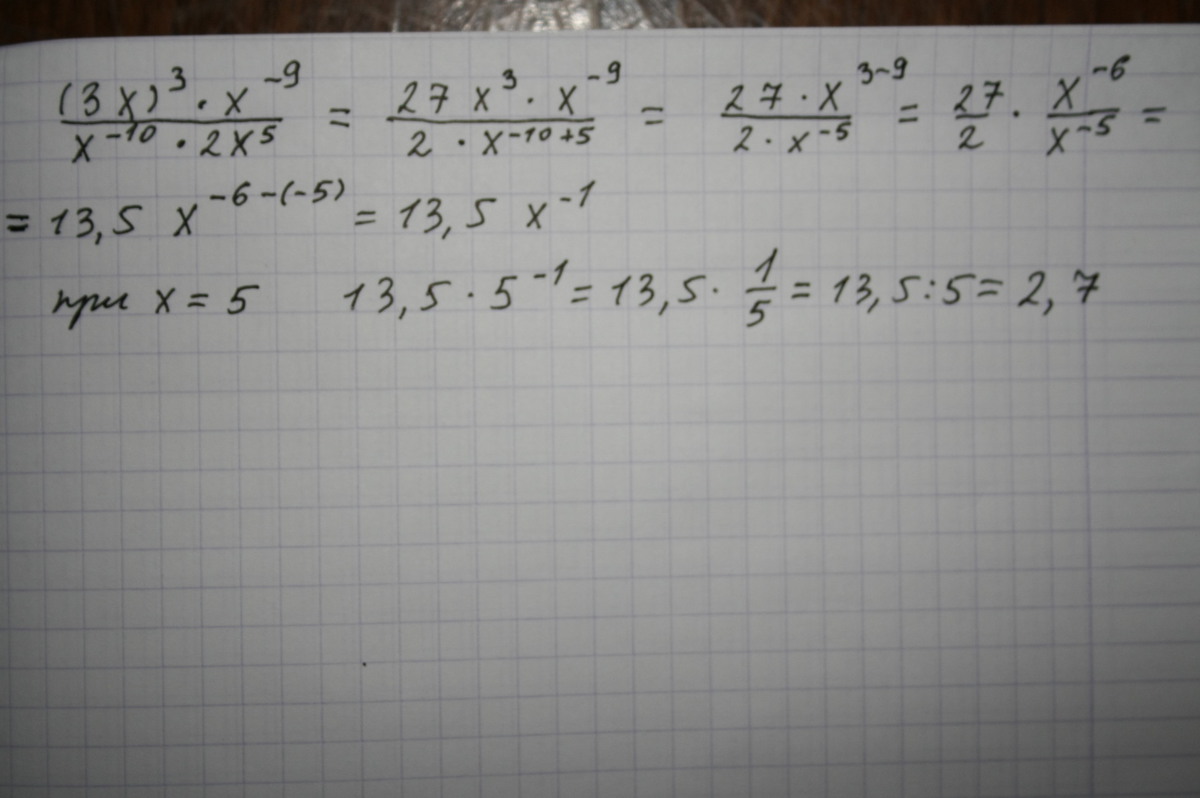 (3x)³ · x⁻⁹ / x⁻¹⁰ · 2x⁵ = 27 x³ · x⁻⁹ / 2 · x⁻¹⁰⁺⁵ = 27 · x³⁻⁹ / 2 · x⁻⁵ = 27/2 · x⁻⁶/x⁻⁵ =
= 13,5 x⁻⁶⁻⁽⁻⁵⁾ = 13,5 x⁻¹
при x = 5 13,5 · 5⁻¹ = 13,5 · 1/5 = 13,5 : 5 = 2,7